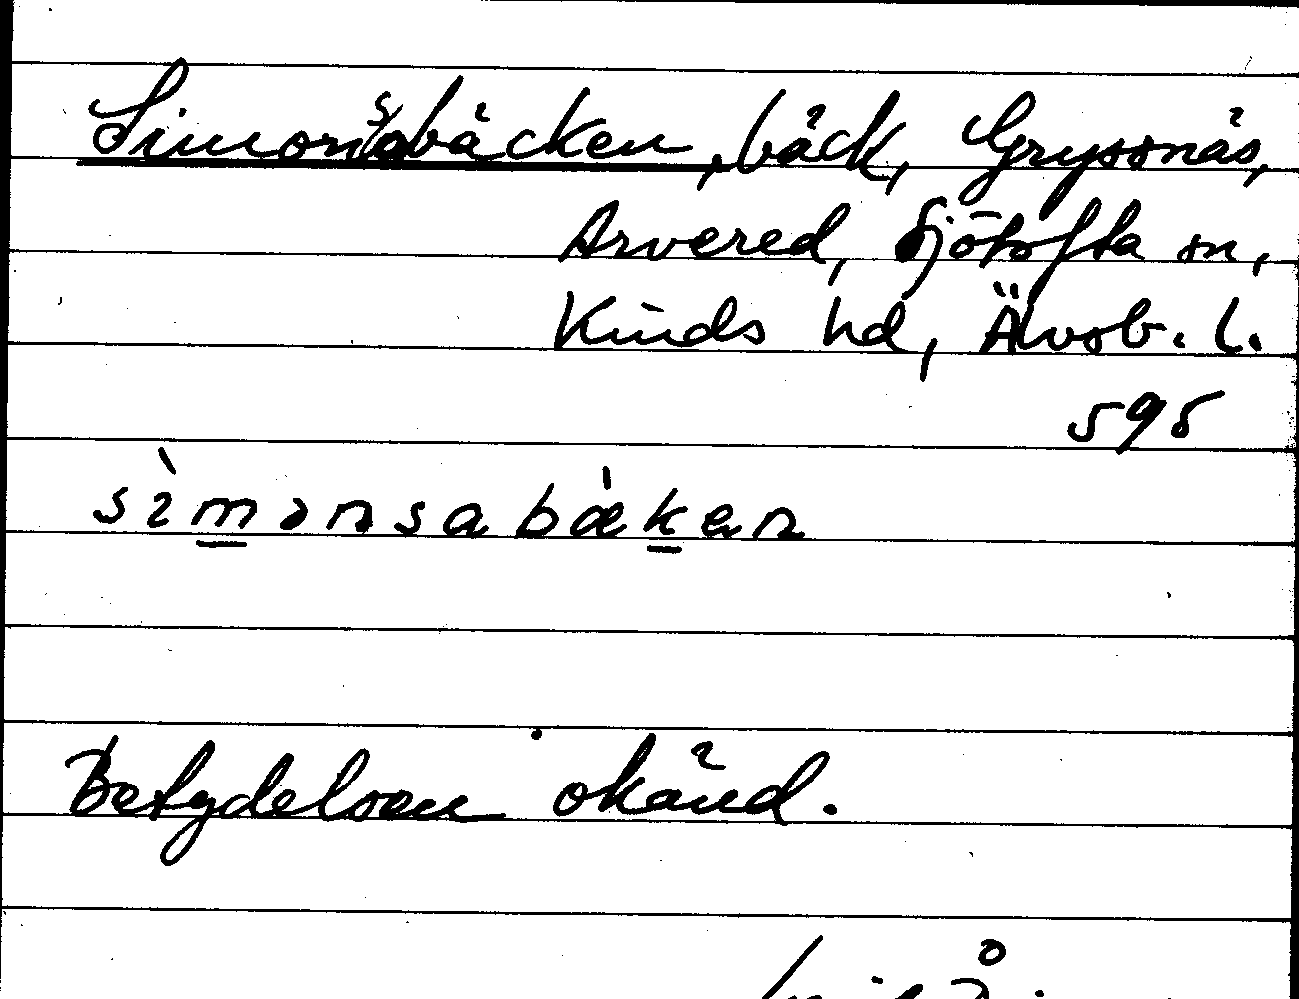 Simonsabäcken, bäck, Gryssnäs,
Arvered, Sjötofta sn,
Kinds hd, Älvsb. l.
595
sìmɔnsabæ̀ken
Betydelsen okänd.